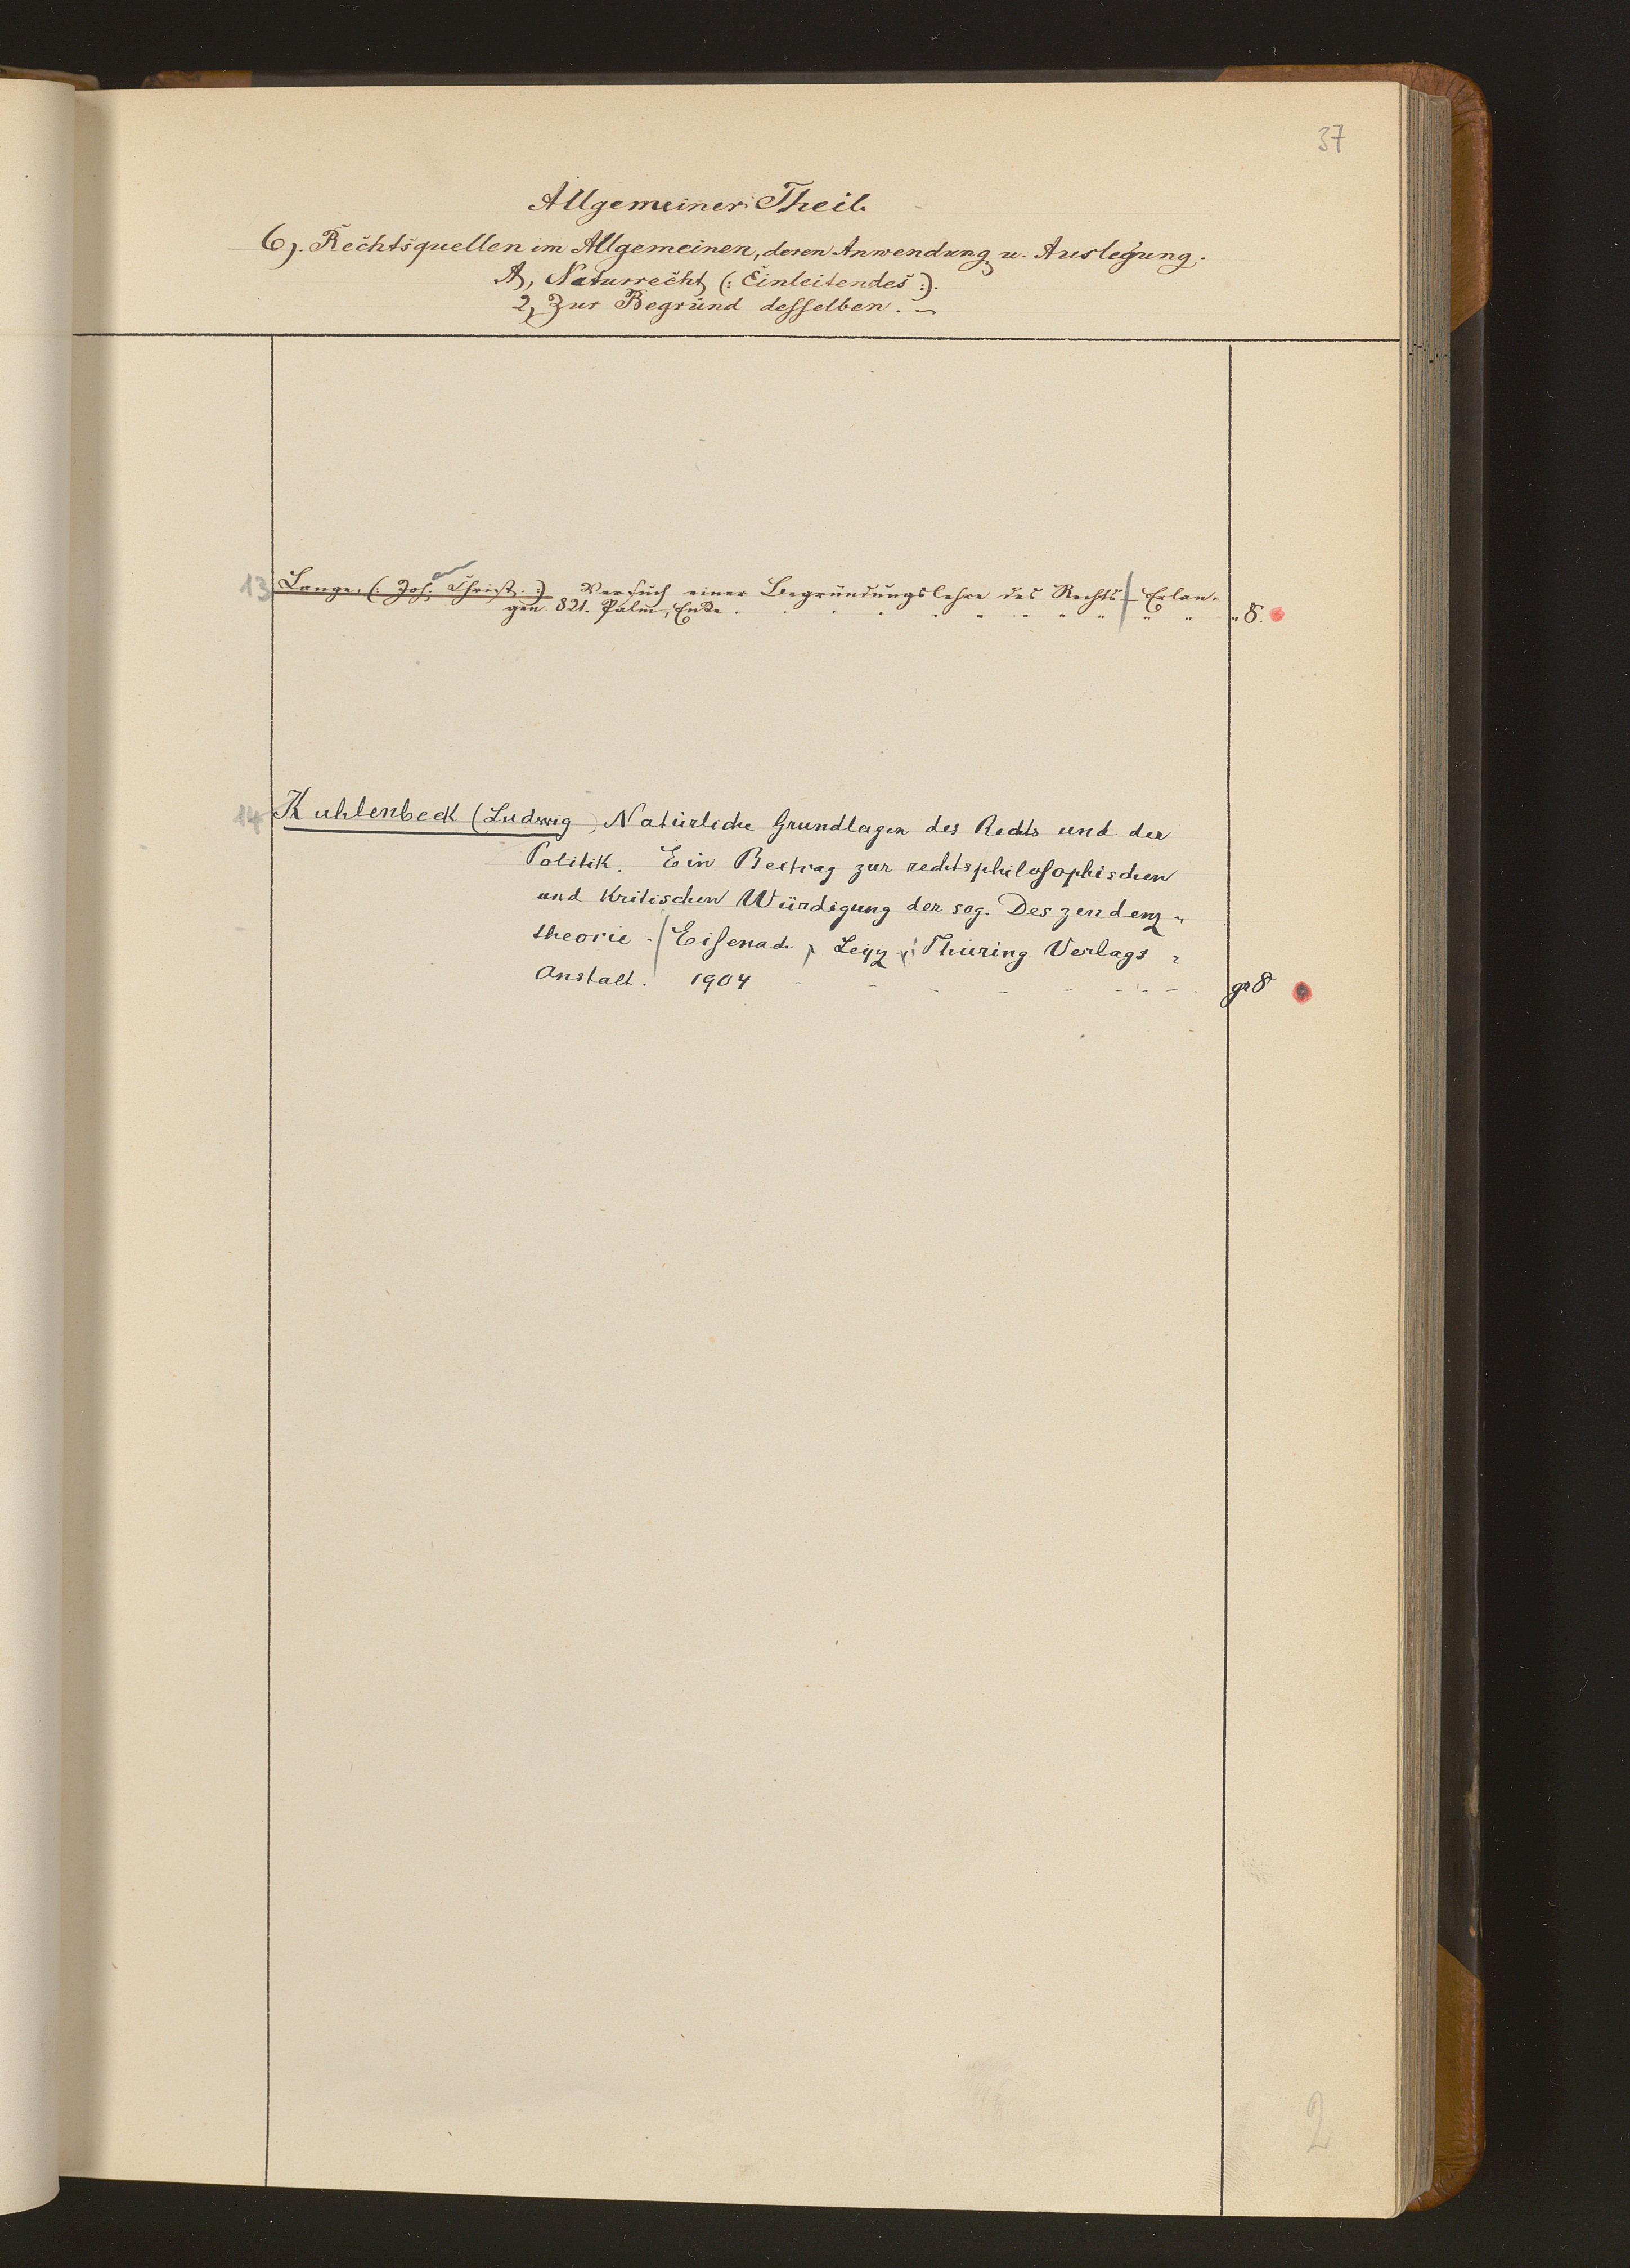 37
Allgemeiner Theil.
6). Rechtsquellen im Allgemeinen, deren Anwendung u. Auslegung.
A, Naturrecht (: Einleitendes :).
2, Zur Begründ desselben. –
13 Lange, (: Joh. Christ. :) Versuch einer Begründungslehre des Rechts. Erlan-
gen 821. Palm, Enke . . . . . . . . . . . 8.
14 Kuhlenbeck (Ludwig) Natürliche Grundlagen des Rechts und der
Politik. Ein Beitrag zur rechtsphilosophischen
und Kritischen Würdigung der sog. Deszendenz-
theorie. Eisenach, Leipz. Thüring. Verlags-
Anstalt. 1904 - - - - - - - - gr 8
2